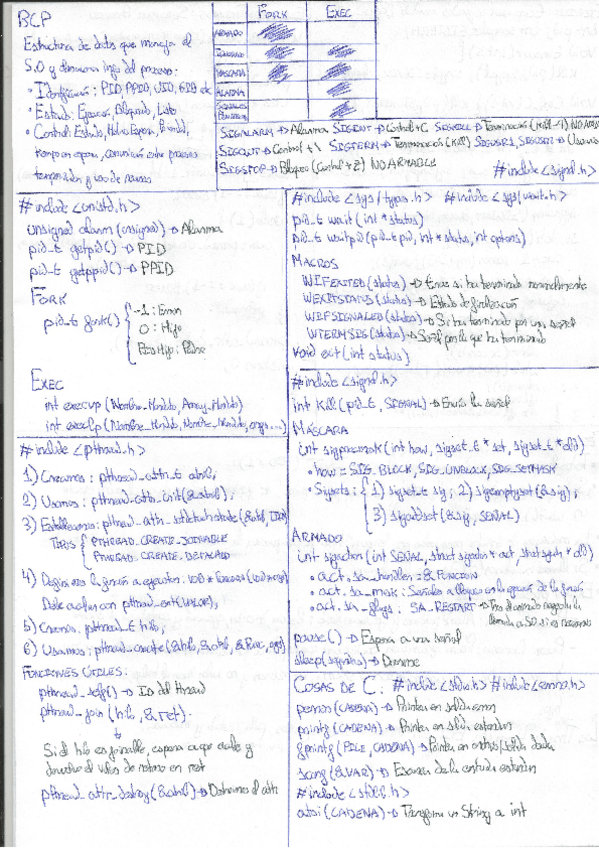 BCP
Estructura de datos que maneja el
S.O y almacena info del proceso:
• Identificación: PID, PPID, UID, GID etc
• Estado: Ejecución, Bloqueado, Listo
• Control: Estado,
tiempo en espera, comunicación entre procesos
temporizadores y uso de
FORK EXEC
ARMADO
IGNORADO
MÁSCARA
ALARMA
SEÑALES
PENDIENTES
SIGALARM → Alarma SIGINT → Control+C SIGKILL → Terminación (Kill -9) NO ARMABLE
SIGQUIT → Control+\ SIGTERM → Terminación (Kill) SIGUSR1, SIGUSR2 → Usuario
SIGSTOP → Bloqueo (Control+Z) NO ARMABLE
#include <signal.h>
#include <unistd.h>
unsigned alarm (unsigned) → Alarma
pid_t getpid() → PID
pid_t getppid() → PPID
FORK
pid_t fork()
-1: Error
0: Hijo
Positivo: Padre
EXEC
int execvp (Nombre_Mondido, Array_Mondido)
int execlp (Nombre_Mondido, Nombre_Mondido, args...)
#include <sys/types.h> #include <sys/wait.h>
pid_t wait (int * status)
pid_t waitpid (pid_t pid, int * status, int options)
MACROS
WIFEXITED (status) → Error si ha terminado normalmente
WEXITSTATUS (status) → Estado de finalización
WIFSIGNALED (status) → Si ha terminado por una señal
WTERMSIG (status) → Señal por la que ha terminado
void exit (int status)
#include <signal.h>
int kill (pid_t, SEÑAL) → Envía la señal
MÁSCARA
int sigprocmask (int how, sigset_t * set, sigset_t * old)
• how = SIG_BLOCK, SIG_UNBLOCK, SIG_SETMASK
• Sigsets: 1) sigset_t sig; 2) sigemptyset (&sig);
3) sigaddset (&sig, SEÑAL)
ARMADO
int sigaction (int SEÑAL, struct sigaction * act, struct sigaction * old)
• act.sa_handler = & FUNCION
• act.sa_mask: Señales a bloquear en la ejecución de la función
• act.sa_flags: SA_RESTART →
llamada al SO si es necesario
pause() → Espera a una señal
sleep (segundos) → Dormirse
#include <pthread.h>
1) Creamos: pthread_attr_t atrib;
2) Usamos: pthread_attr_init (&atrib);
3) Establecemos: pthread_attr_setdetachstate (&atrib, TIPO)
TIPOS PTHREAD_CREATE_JOINABLE
PTHREAD_CREATE_DETACHED
4) Definimos la función a ejecutar: void * Funcion (void * arg)
Debe acabar con pthread_exit (VALOR);
5) Creamos pthread_t hilo;
6) Usamos: pthread_create (&hilo, &atrib, &Func, args)
FUNCIONES ÚTILES:
pthread_self() → ID del thread
pthread_join (hilo, &ret).
Si el hilo es joinable, espera a que acabe y
devuelve el valor de retorno en ret
pthread_attr_destroy (&atrib) → Destruimos el attr
COSAS DE C: #include <stdio.h> #include <errno.h>
perror (CADENA) → Printea en salida error
printf (CADENA) → Printea en salida estandar
fprintf (FILE, CADENA) → Printea en entrada/salida dada
scanf (&VAR) → Escanea desde entrada estandar
#include <stdlib.h>
atoi (CADENA) → Transforma un String a int